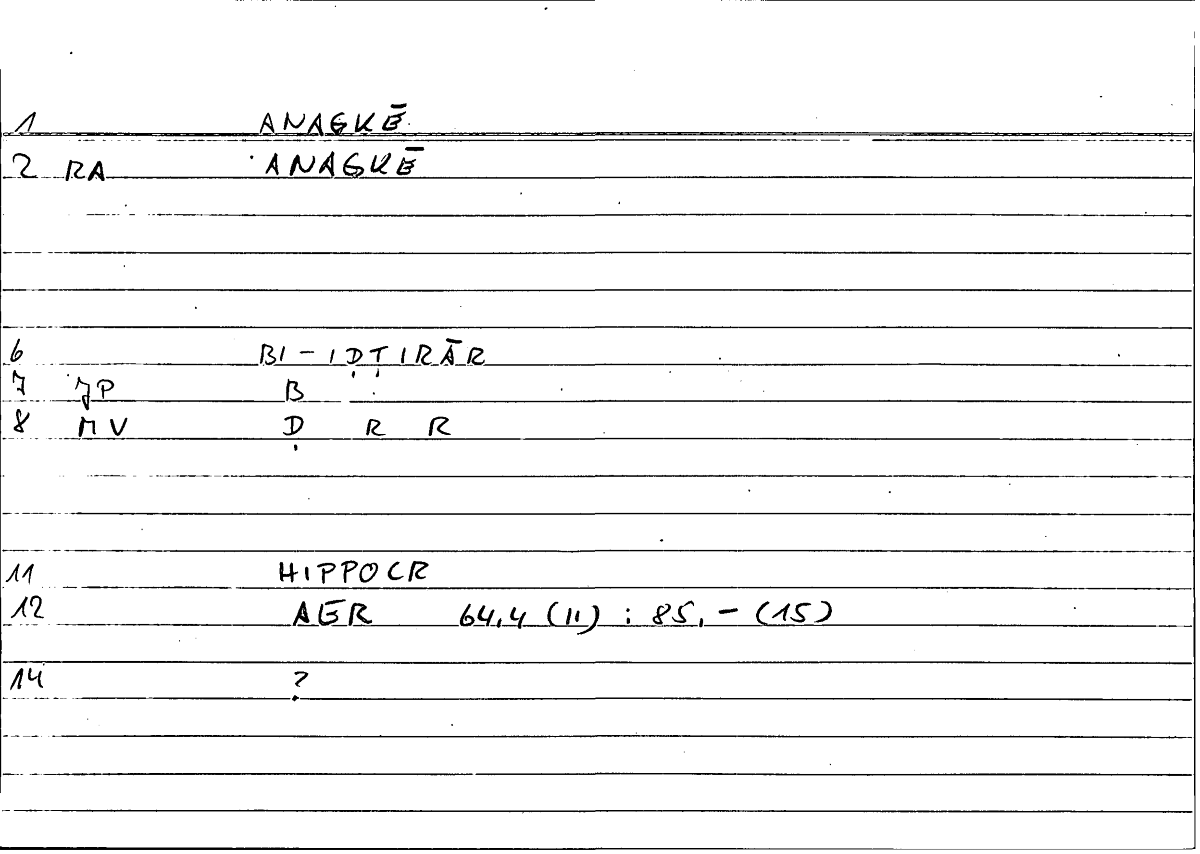 1 ANAGKĒ
2 RA ANAGKĒ
6 BI-IḌṬIRĀR
7 JP B
8 MV Ḍ R R
11 HIPPOCR
12 AER 64,4 (11) : 85,- (15)
14 ?